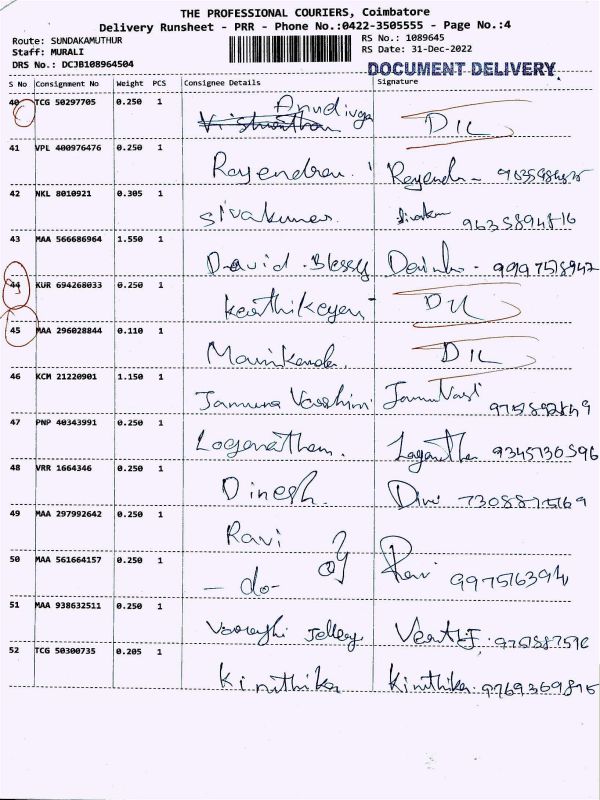 THE PROFESSIONAL COURIERS, Coimbatore
Delivery Runsheet - PRR - Phone No.:0422-3505555 - Page No.:4
Route: SUNDAKAMUTHUR RS No.: 1089645
Staff: MURALI RS Date: 31-Dec-2022
DRS No.: DCJB108964504 DOCUMENT DELIVERY
S No Consignment No Weight PCS Consignee Details Signature
40 TCG 50297705 0.250 1
41 VPL 400976476 0.250 1 Rajendran.
42 NKL 8010921 0.305 1 Sivakumar. 9635894816
43 MAA 566686964 1.550 1 David Blessy 9997518942
44 KUR 694268033 0.250 1 Karthikeyan
45 MAA 296028844 0.110 1 Manikanda.
46 KCM 21220901 1.150 1 Jamuna
47 PNP 40343991 0.250 1 Loganathan. 9345730596
48 VRR 1664346 0.250 1 Dinesh.
49 MAA 297992642 0.250 1 Ravi
50 MAA 561664157 0.250 1 -do- Ravi
51 MAA 938632511 0.250 1
52 TCG 50300735 0.205 1 Kiruthika Kiruthika. 9769369815